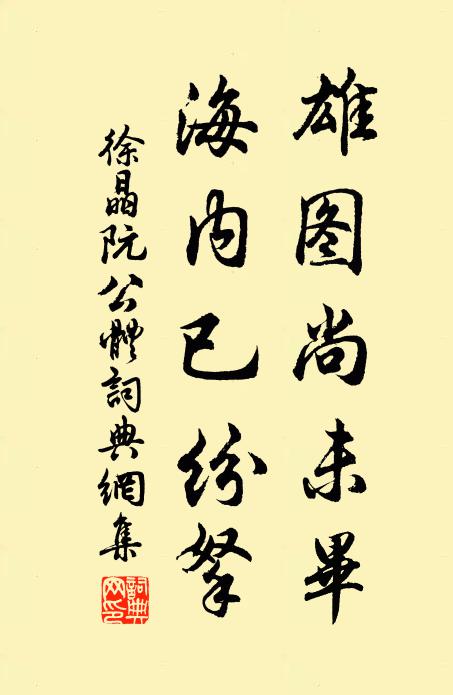 雄图尚未畢
海内已纷拏
徐晶阮公體詞典網集
詞典网印